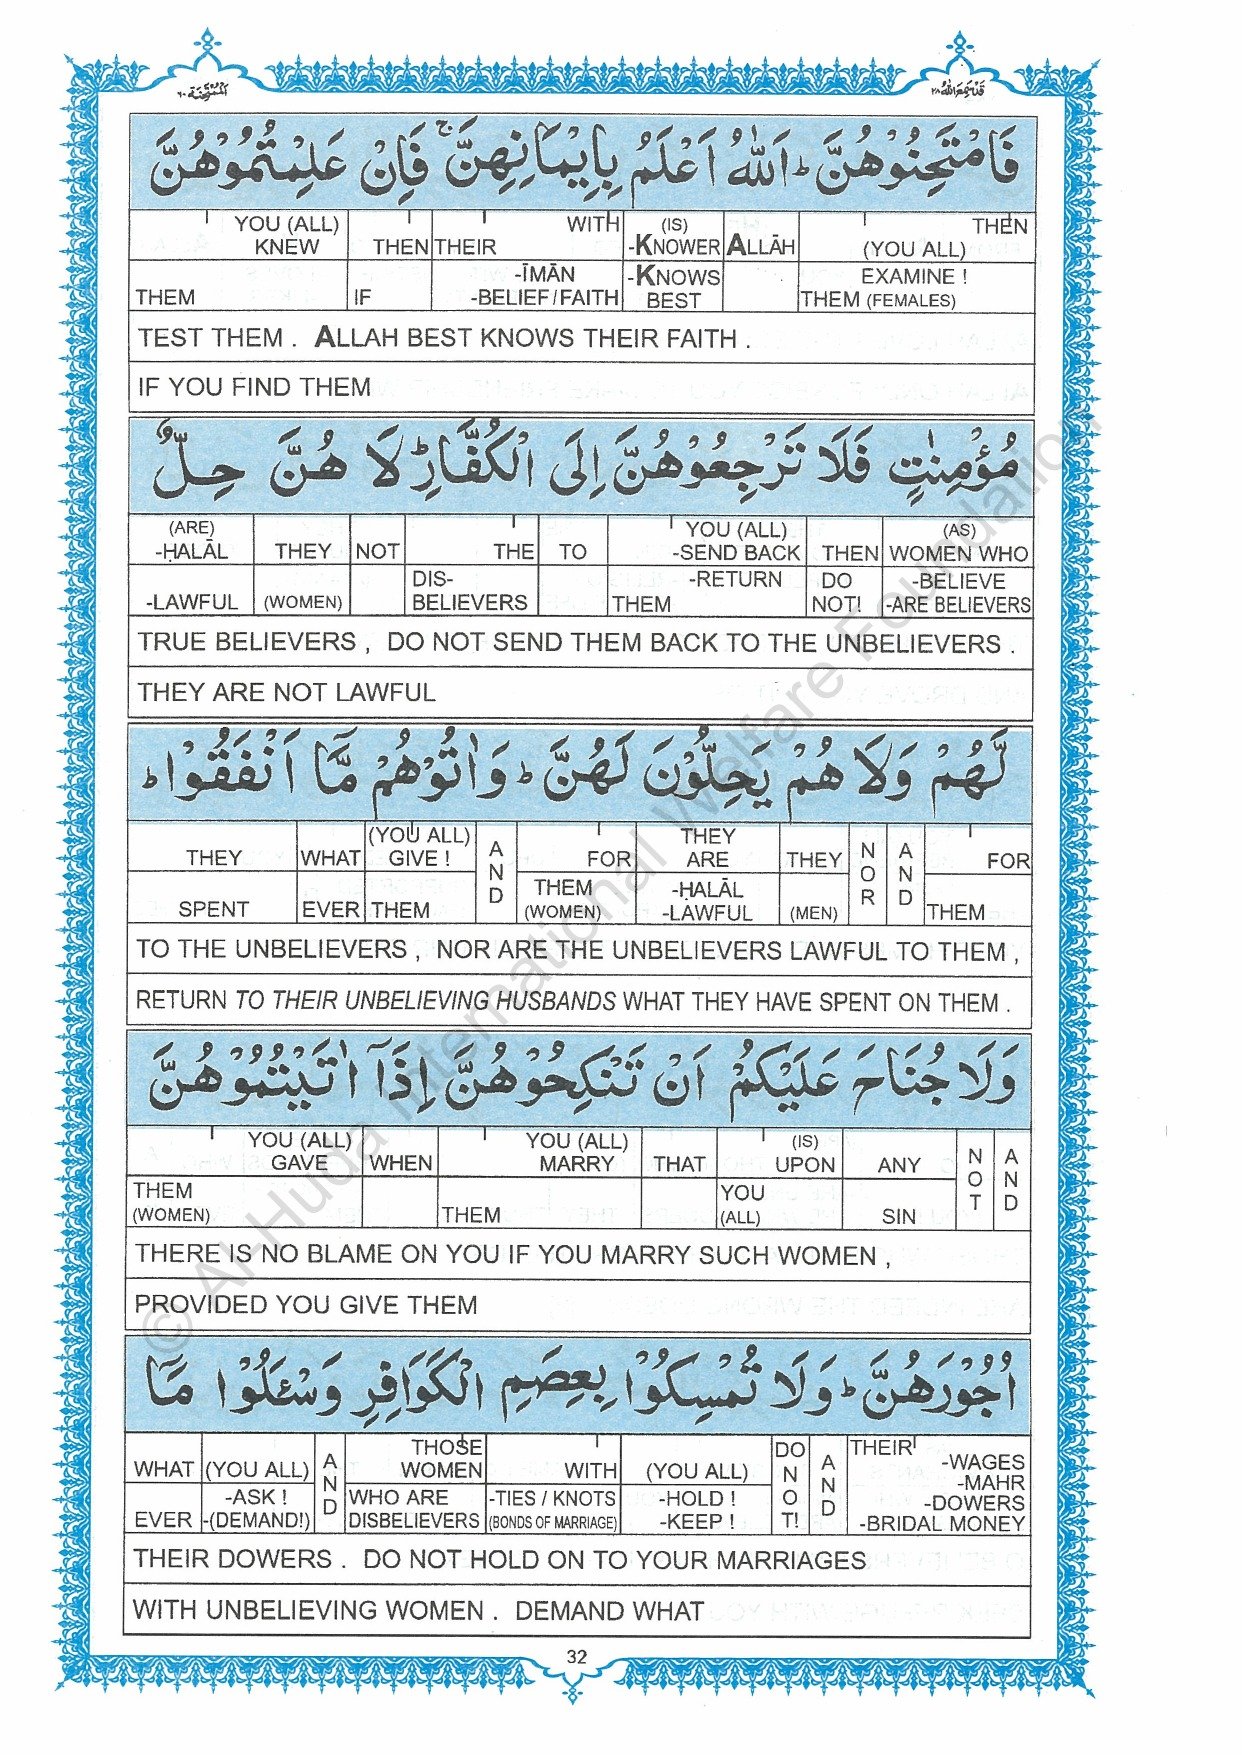 الممتحنة ٦٠
قد سمع الله ٢٨
فَامْتَحِنُوْهُنَّ ؕ اَللّٰهُ اَعْلَمُ بِاِيْمَانِهِنَّ ۚ فَاِنْ عَلِمْتُمُوْهُنَّ
YOU (ALL) WITH (IS) THEN
KNEW THEN THEIR -KNOWER ALLĀH (YOU ALL)
-ĪMĀN -KNOWS EXAMINE !
THEM IF -BELIEF/FAITH BEST THEM (FEMALES)
TEST THEM . ALLAH BEST KNOWS THEIR FAITH .
IF YOU FIND THEM
مُؤْمِنٰتٍ فَلَا تَرْجِعُوْهُنَّ اِلَى الْكُفَّارِ ؕ لَا هُنَّ حِلٌّ
(ARE) YOU (ALL) (AS)
-ḤALĀL THEY NOT THE TO -SEND BACK THEN WOMEN WHO
DIS- -RETURN DO -BELIEVE
-LAWFUL (WOMEN) BELIEVERS THEM NOT! -ARE BELIEVERS
TRUE BELIEVERS , DO NOT SEND THEM BACK TO THE UNBELIEVERS .
THEY ARE NOT LAWFUL
لَّهُمْ وَلَا هُمْ يَحِلُّوْنَ لَهُنَّ ؕ وَاٰتُوْهُمْ مَّاۤ اَنْفَقُوْا ؕ
(YOU ALL) THEY
THEY WHAT GIVE ! AND FOR ARE THEY NOR AND FOR
THEM -ḤALĀL
SPENT EVER THEM (WOMEN) -LAWFUL (MEN) THEM
TO THE UNBELIEVERS , NOR ARE THE UNBELIEVERS LAWFUL TO THEM ,
RETURN TO THEIR UNBELIEVING HUSBANDS WHAT THEY HAVE SPENT ON THEM .
وَلَا جُنَاحَ عَلَيْكُمْ اَنْ تَنْكِحُوْهُنَّ اِذَاۤ اٰتَيْتُمُوْهُنَّ
YOU (ALL) YOU (ALL) (IS)
GAVE WHEN MARRY THAT UPON ANY NOT AND
THEM YOU
(WOMEN) THEM (ALL) SIN
THERE IS NO BLAME ON YOU IF YOU MARRY SUCH WOMEN ,
PROVIDED YOU GIVE THEM
اُجُوْرَهُنَّ ؕ وَلَا تُمْسِكُوْا بِعِصَمِ الْكَوَافِرِ وَسْـَٔلُوْا مَاۤ
THOSE DO THEIR
WHAT (YOU ALL) AND WOMEN WITH (YOU ALL) NOT! AND -WAGES
-MAHR
-ASK ! WHO ARE -TIES / KNOTS -HOLD ! -DOWERS
EVER -(DEMAND!) DISBELIEVERS (BONDS OF MARRIAGE) -KEEP ! -BRIDAL MONEY
THEIR DOWERS . DO NOT HOLD ON TO YOUR MARRIAGES
WITH UNBELIEVING WOMEN . DEMAND WHAT
32
© Al-Huda International Welfare Foundation